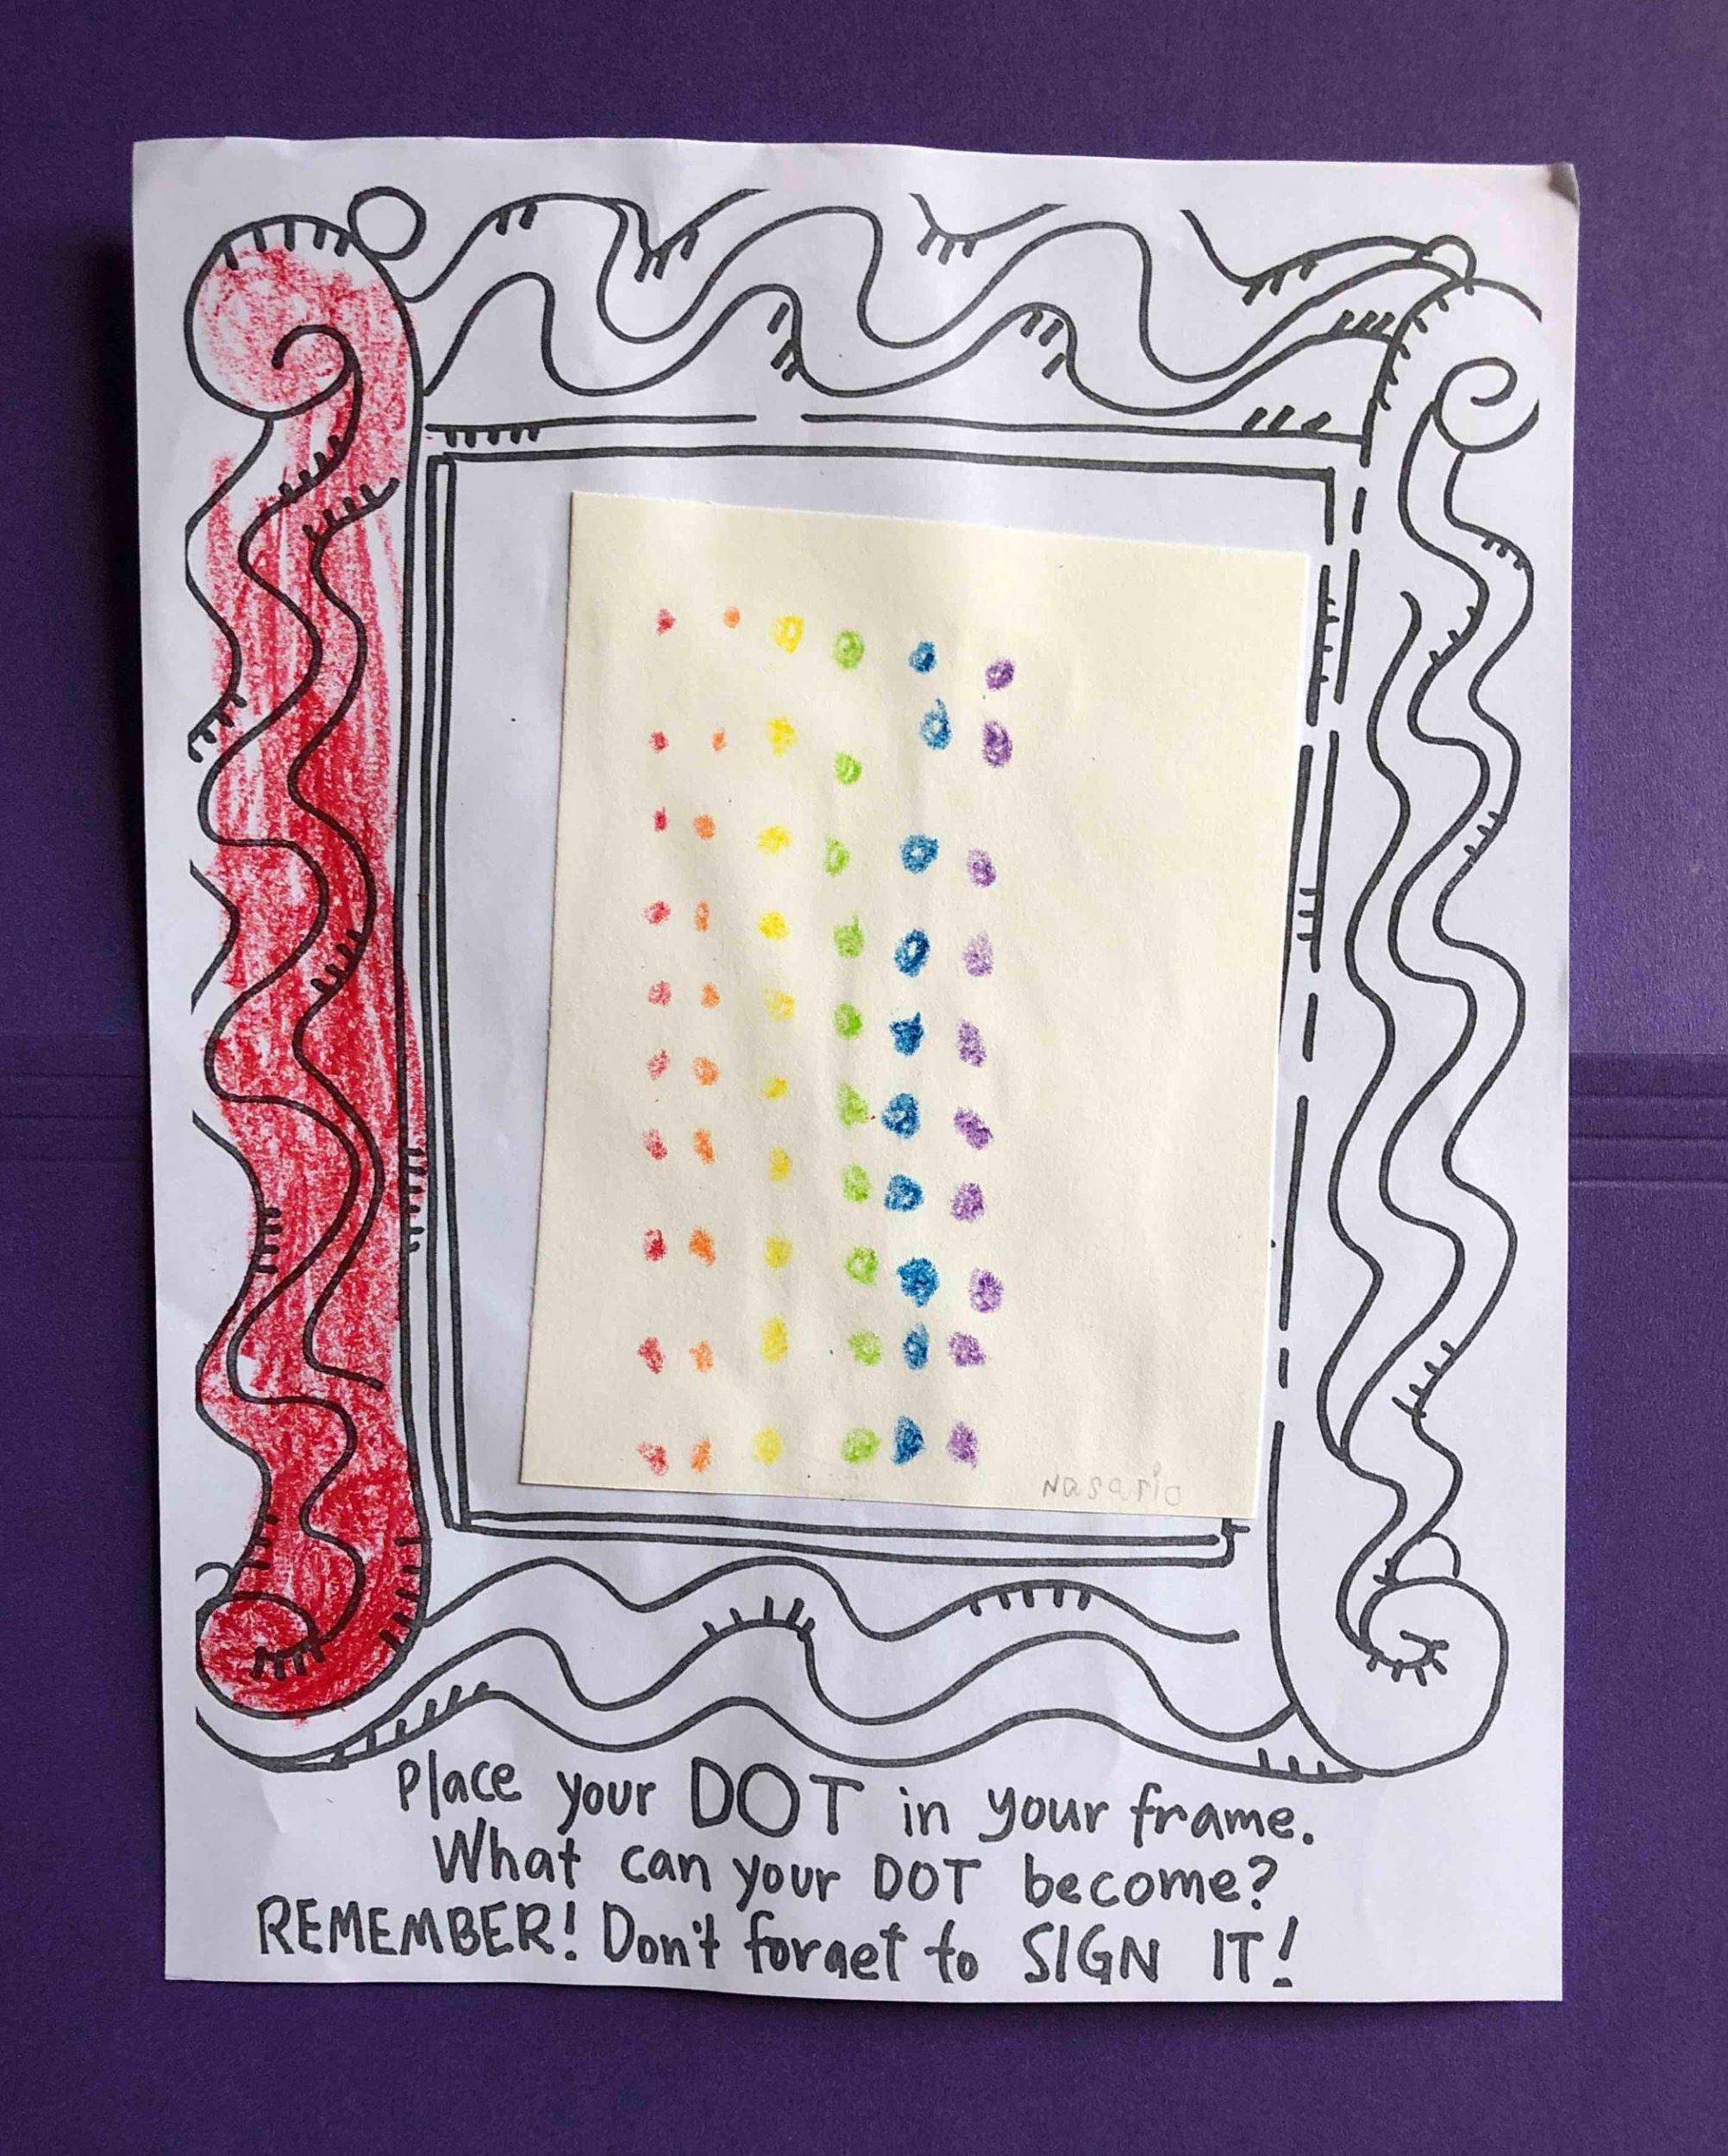 Nasario
Place your DOT in your frame.
What can your DOT become?
REMEMBER! Don't forget to SIGN IT!